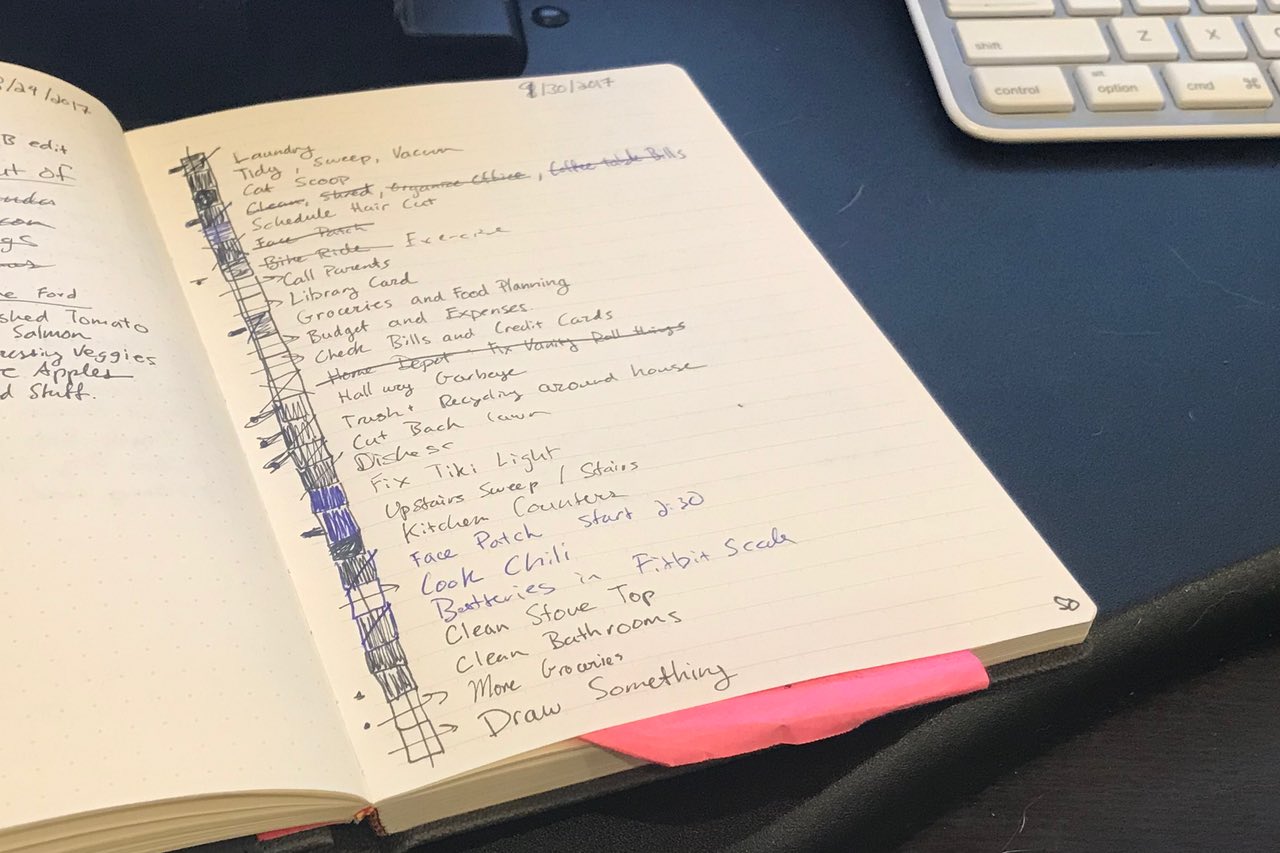 /29/2017
B edit
of
gs
Ford
shed Tomato
Salmon
Veggies
Apples
d Stuff.
9/30/2017
Laundry
Tidy, Sweep, Vacuum
Cat Scoop
Clean, Shred, Organize Office, Coffee table Bills
Schedule Hair Cut
Face Patch
Bike Ride Exercise
Call Parents
Library Card
Groceries and Food Planning
Budget and Expenses.
Check Bills and Credit Cards
Home Depot - Fix Vanity Roll things
Hallway Garbage
Trash + Recycling around house
Cut Back lawn
Dishes
Fix Tiki Light
Upstairs Sweep / Stairs
Kitchen Counters
Face Patch Start 2:30
Cook Chili
Batteries in Fitbit Scale
Clean Stove Top
Clean Bathrooms
More Groceries
Draw Something
50
shift
Z
X
control
alt
option
cmd ⌘